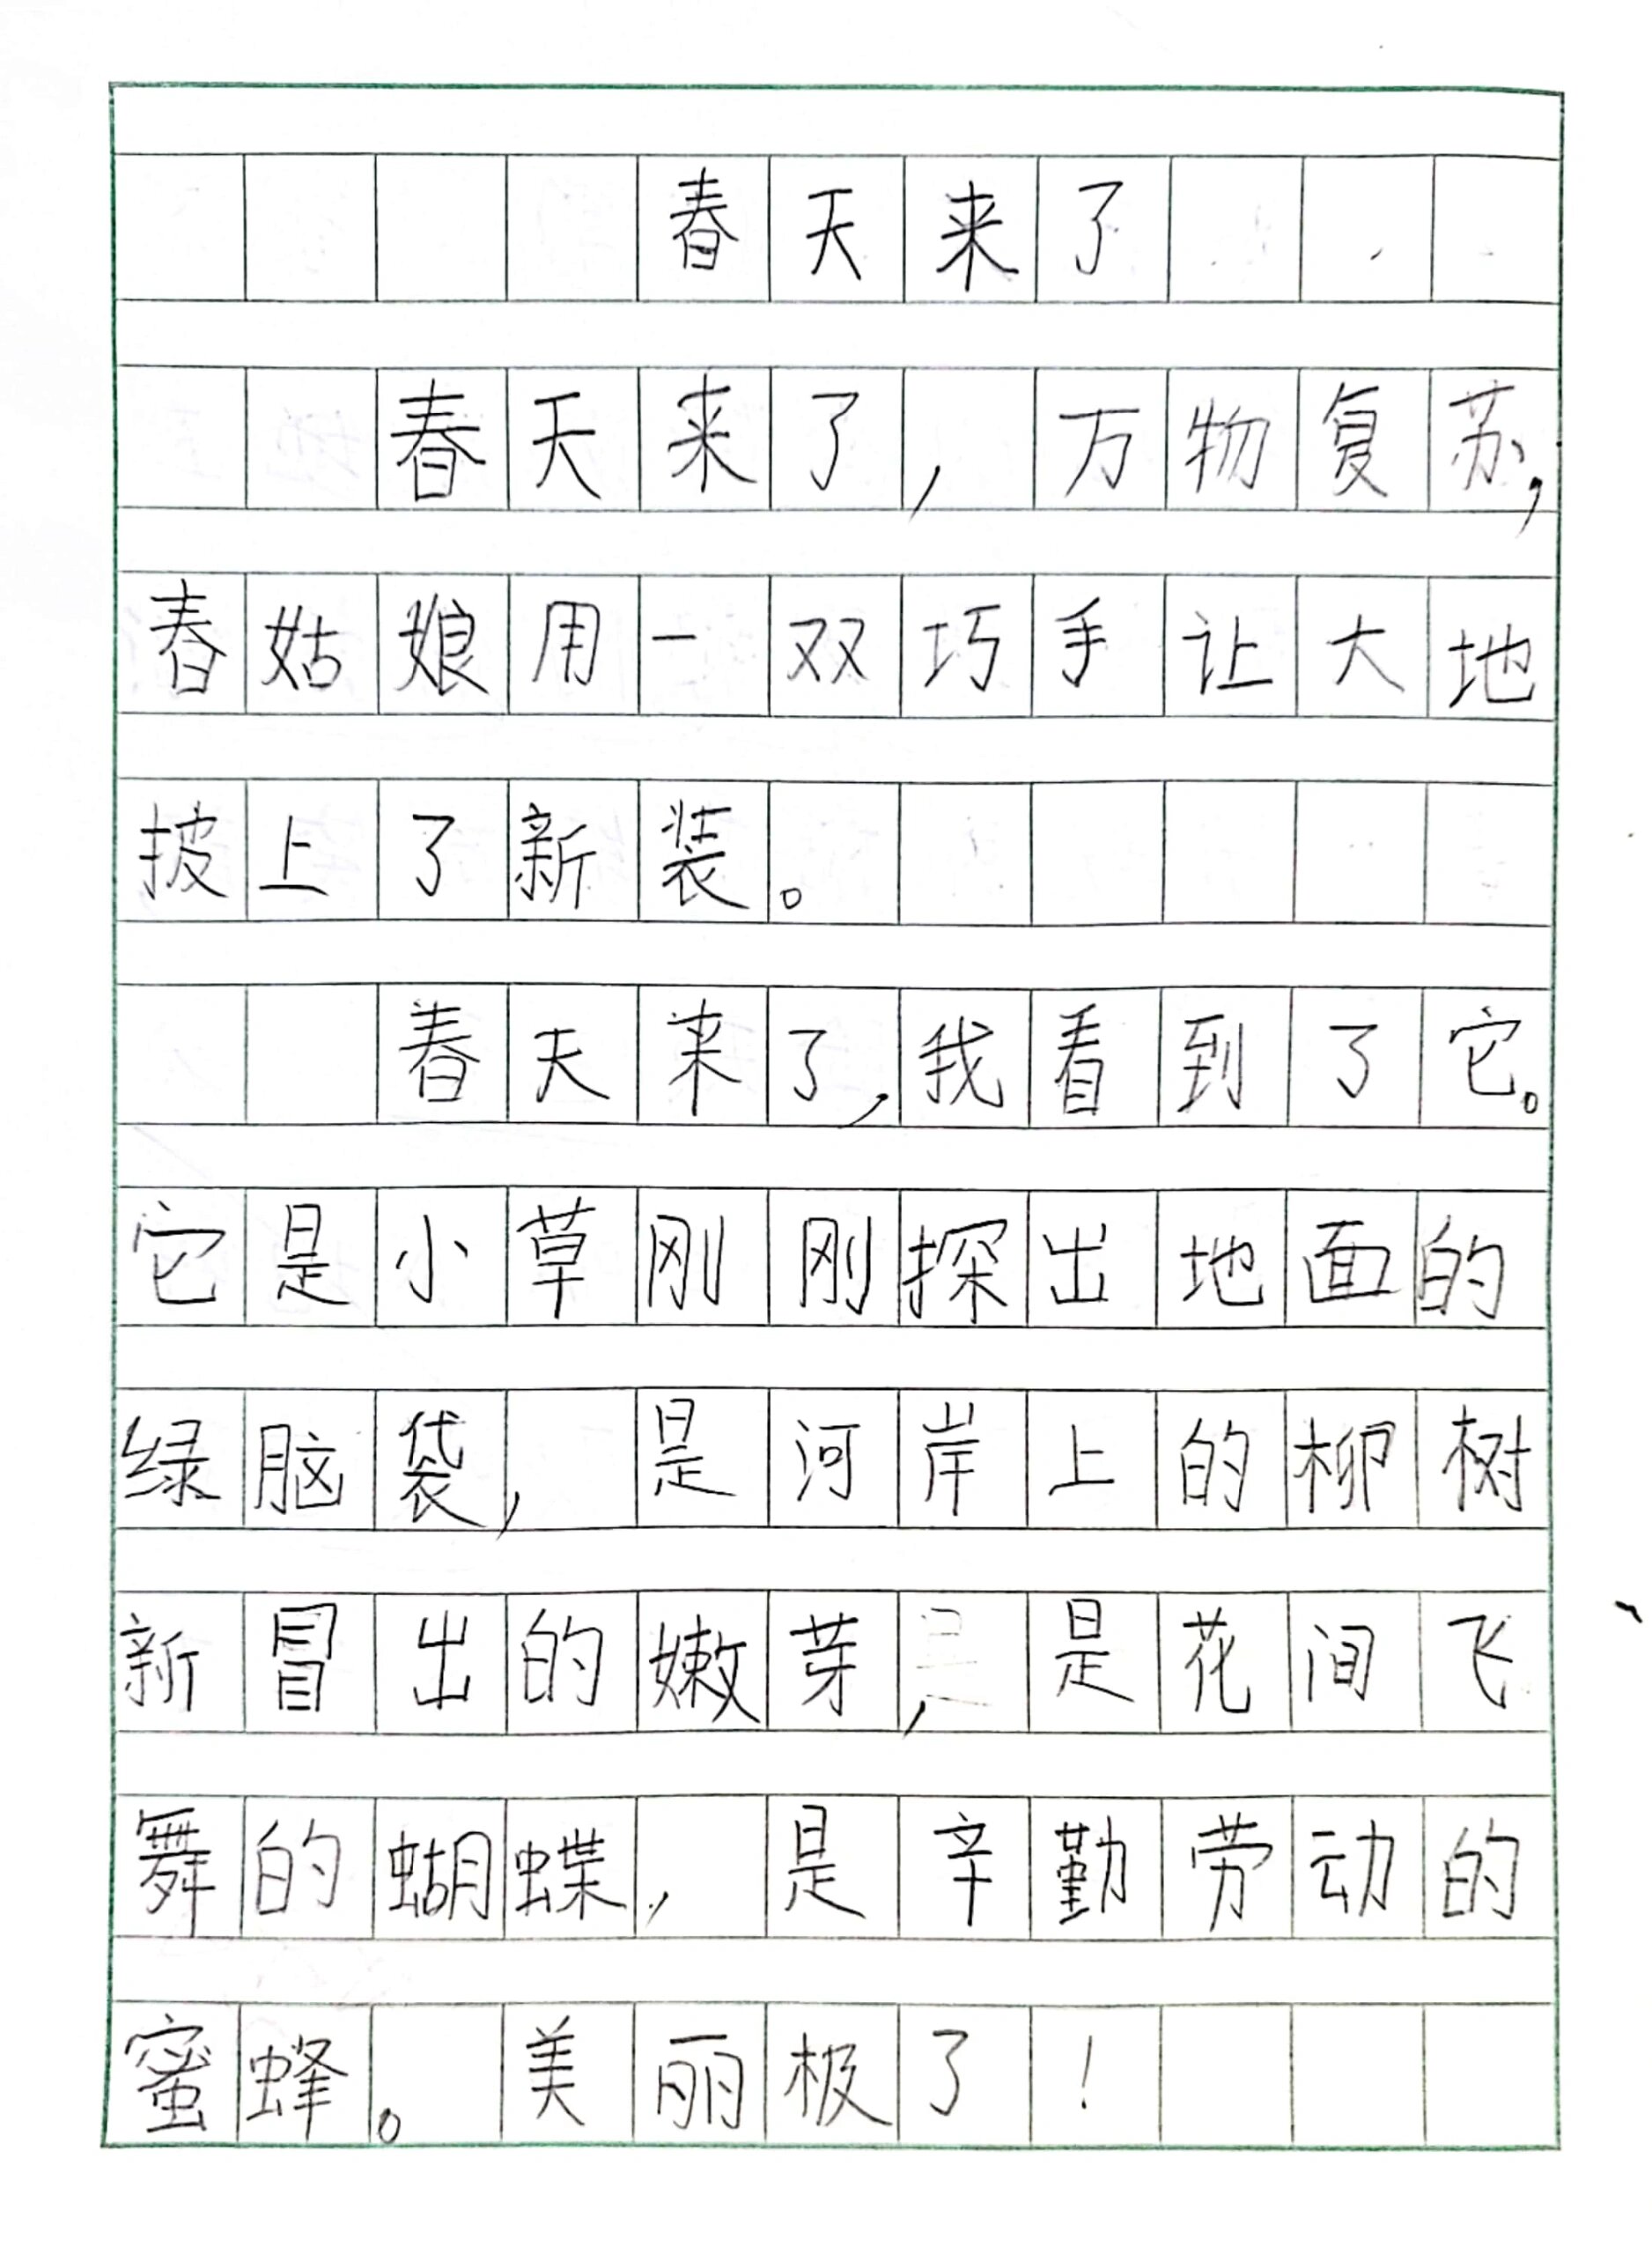 春天来了
春天来了，万物复苏，
春姑娘用一双巧手让大地
披上了新装。
春天来了，我看到了它。
它是小草刚刚探出地面的
绿脑袋，是河岸上的柳树
新冒出的嫩芽，是花间飞
舞的蝴蝶，是辛勤劳动的
蜜蜂。美丽极了！